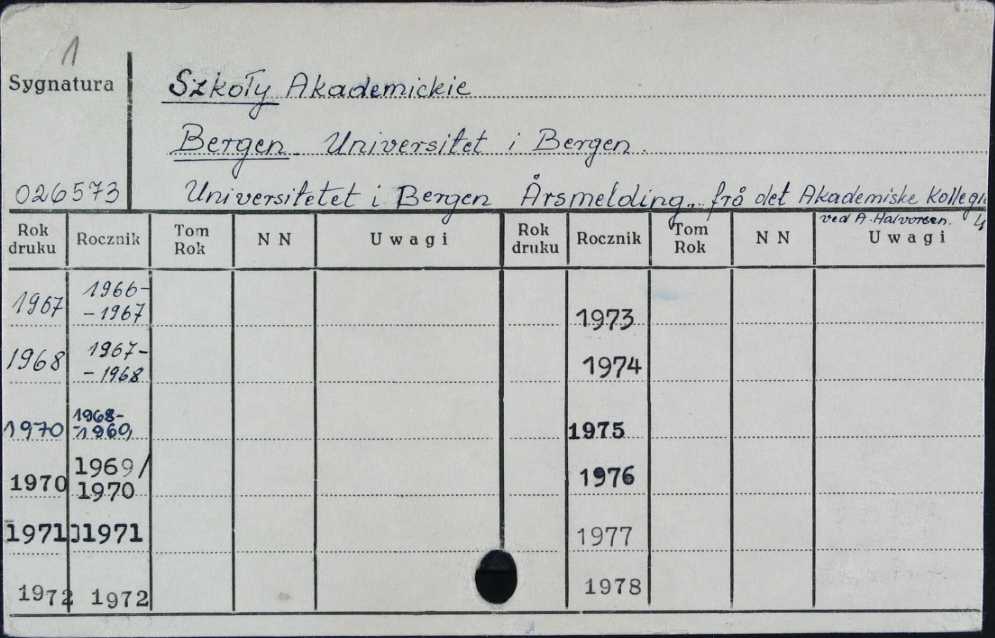 1
Sygnatura
Szkoły Akademickie
Bergen Universitet i Bergen.
026573
Universitetet i Bergen Årsmelding... frå det Akademiske Kollegi
ved A. Halvorsen.
Rok druku Rocznik Tom Rok NN Uwagi Rok druku Rocznik Tom Rok NN Uwagi
1967 1966-
-1967 1973
1968 1967-
-1968 1974
1970 1968-
-1960, 1975
1970 1969/
1970 1976
1971 1971 1977
1972 1972 1978